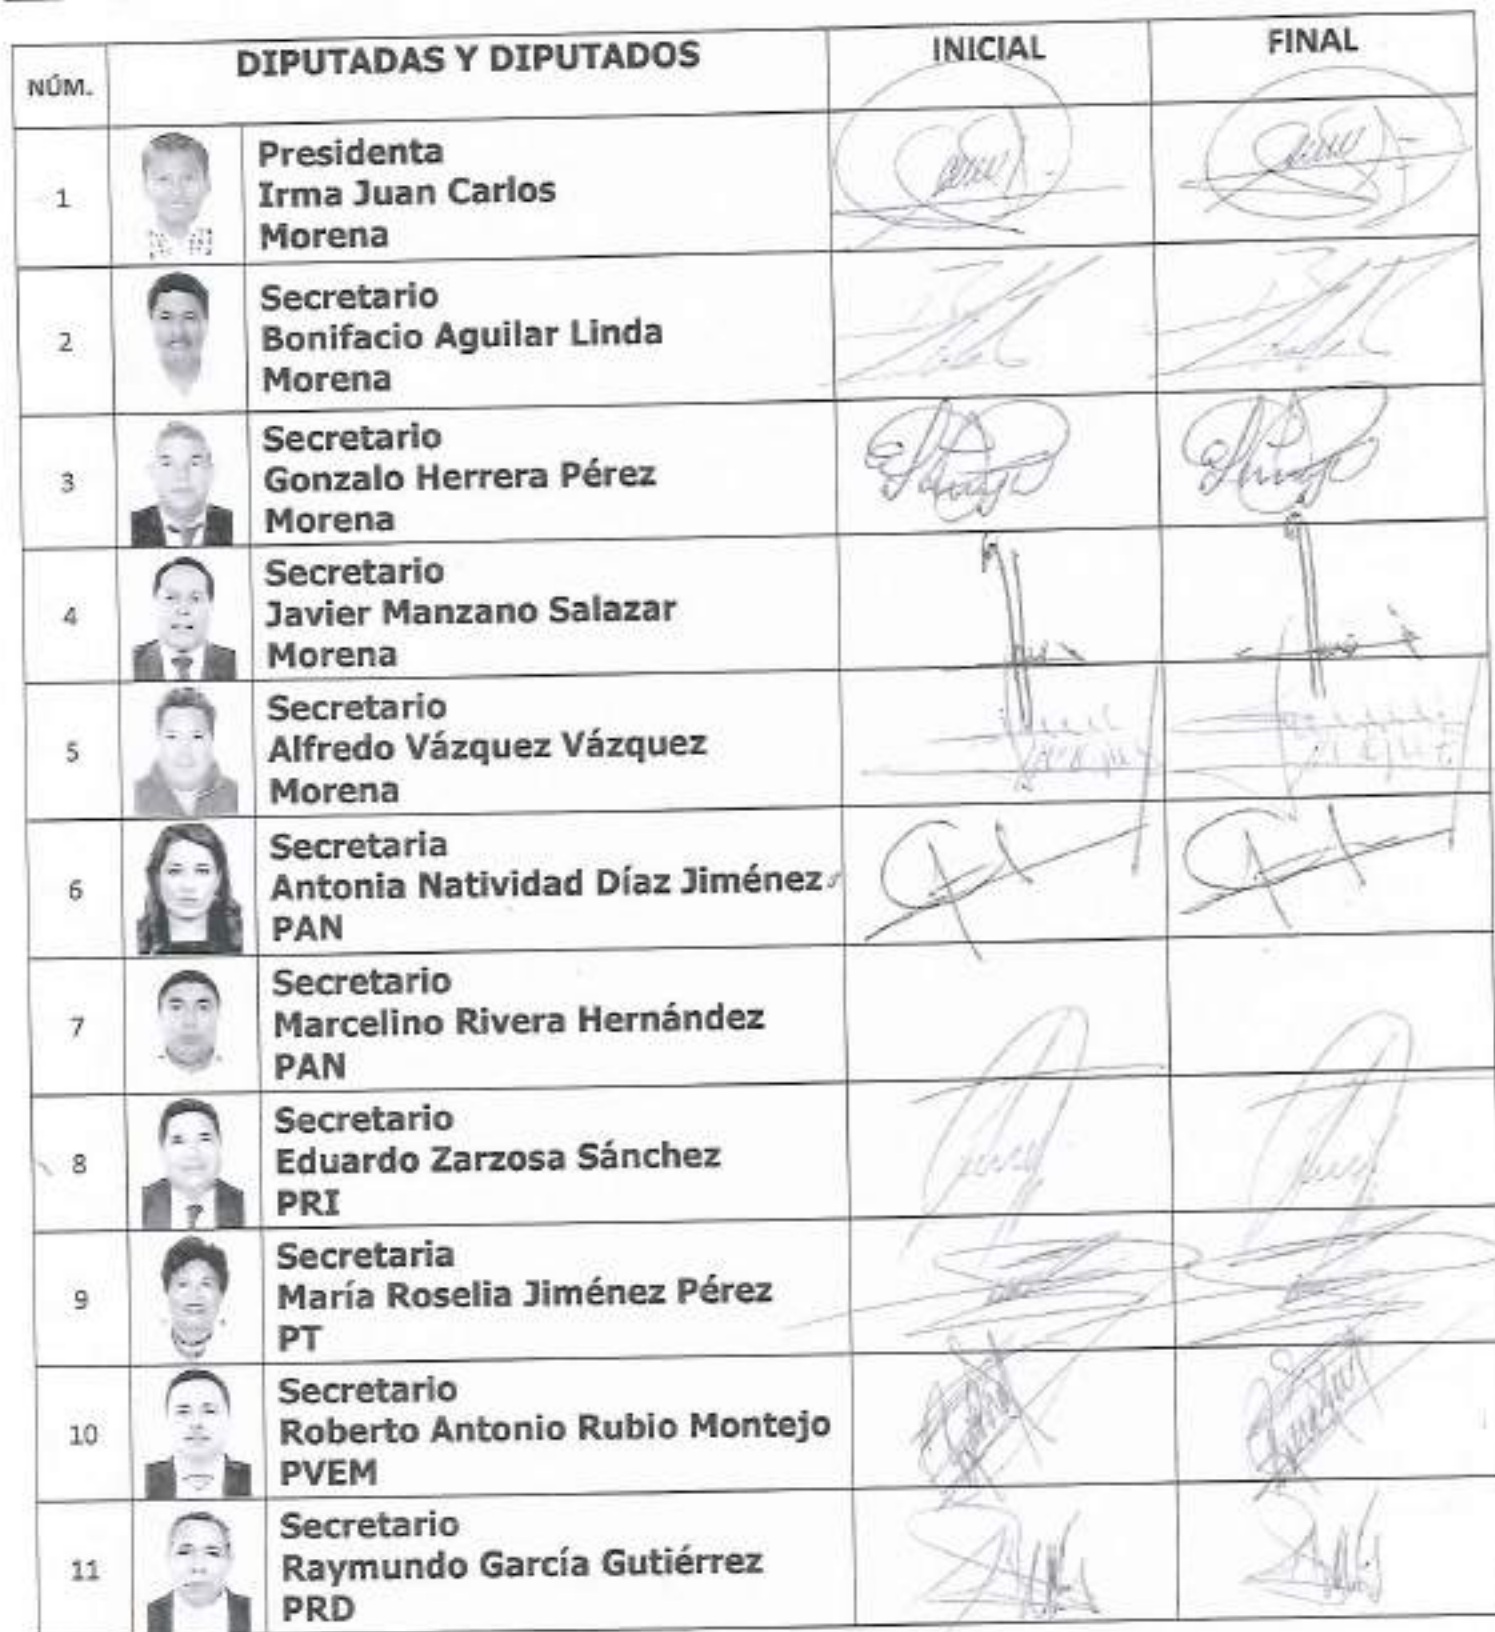 NÚM.
DIPUTADAS Y DIPUTADOS
INICIAL
FINAL
1
Presidenta
Irma Juan Carlos
Morena
2
Secretario
Bonifacio Aguilar Linda
Morena
3
Secretario
Gonzalo Herrera Pérez
Morena
4
Secretario
Javier Manzano Salazar
Morena
5
Secretario
Alfredo Vázquez Vázquez
Morena
6
Secretaria
Antonia Natividad Díaz Jiménez
PAN
7
Secretario
Marcelino Rivera Hernández
PAN
8
Secretario
Eduardo Zarzosa Sánchez
PRI
9
Secretaria
María Roselia Jiménez Pérez
PT
10
Secretario
Roberto Antonio Rubio Montejo
PVEM
11
Secretario
Raymundo García Gutiérrez
PRD